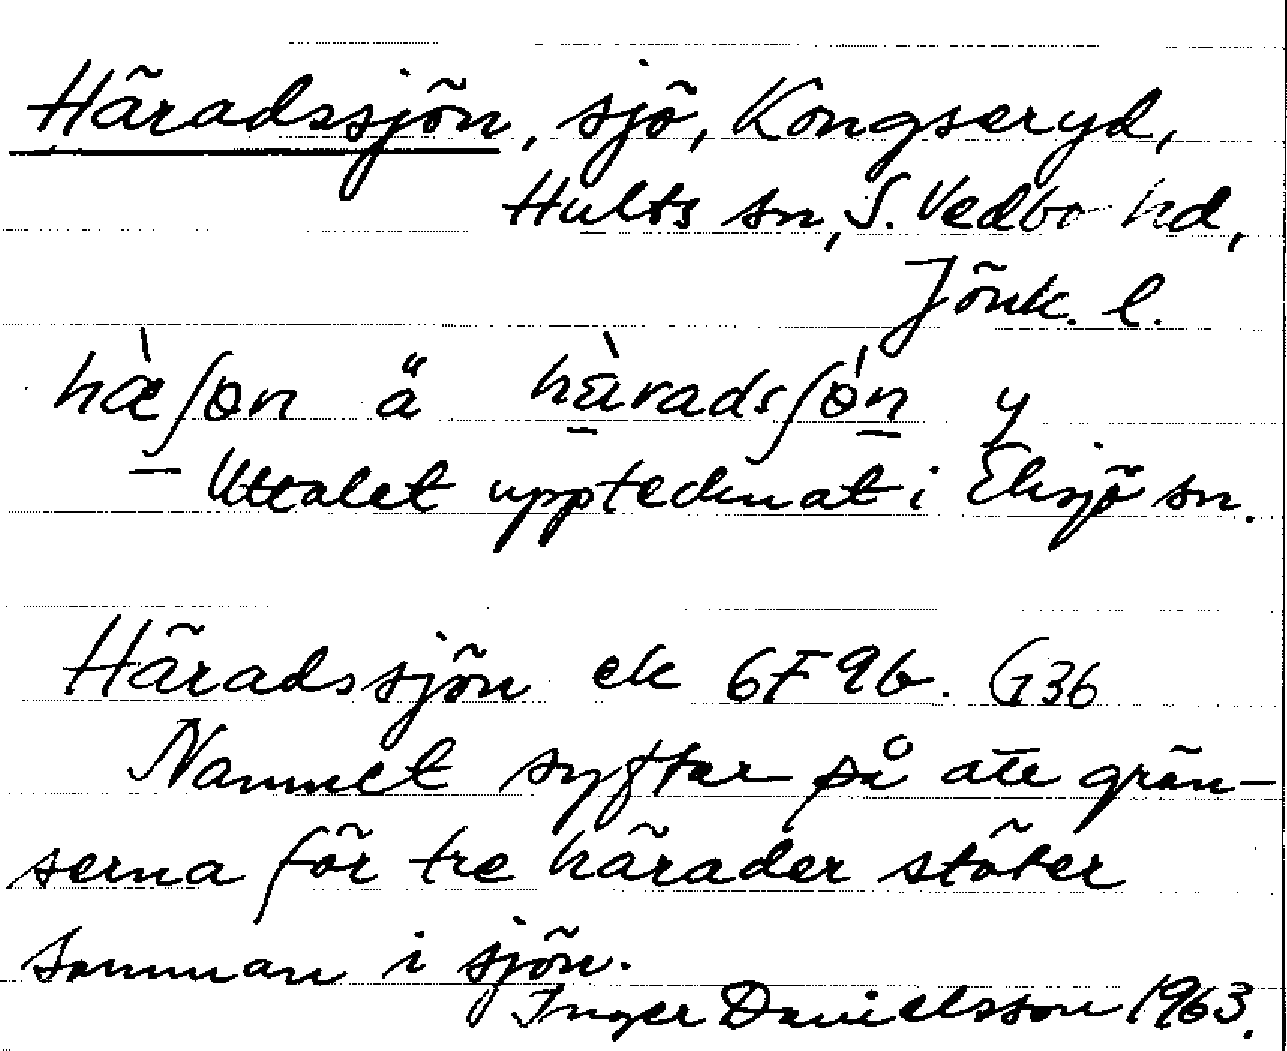 Häradssjön, sjö, Kongseryd,
Hults sn, S. Vedbo hd,
Jönk. l.
hæ̀ʃøn ä hàradsʃøn y
Uttalet upptecknat i Eksjö sn.
Häradssjön ek 6F9b. G36
Namnet syftar på att grän-
serna för tre härader stöter
samman i sjön.
Inger Danielsson 1963.